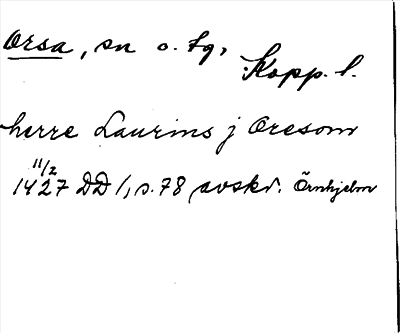 Orsa, sn o. tg,
Kopp. l.
herre Laurins j Oresom
11/2
1427 DD 1, s. 78 avskr. Örnhjelm